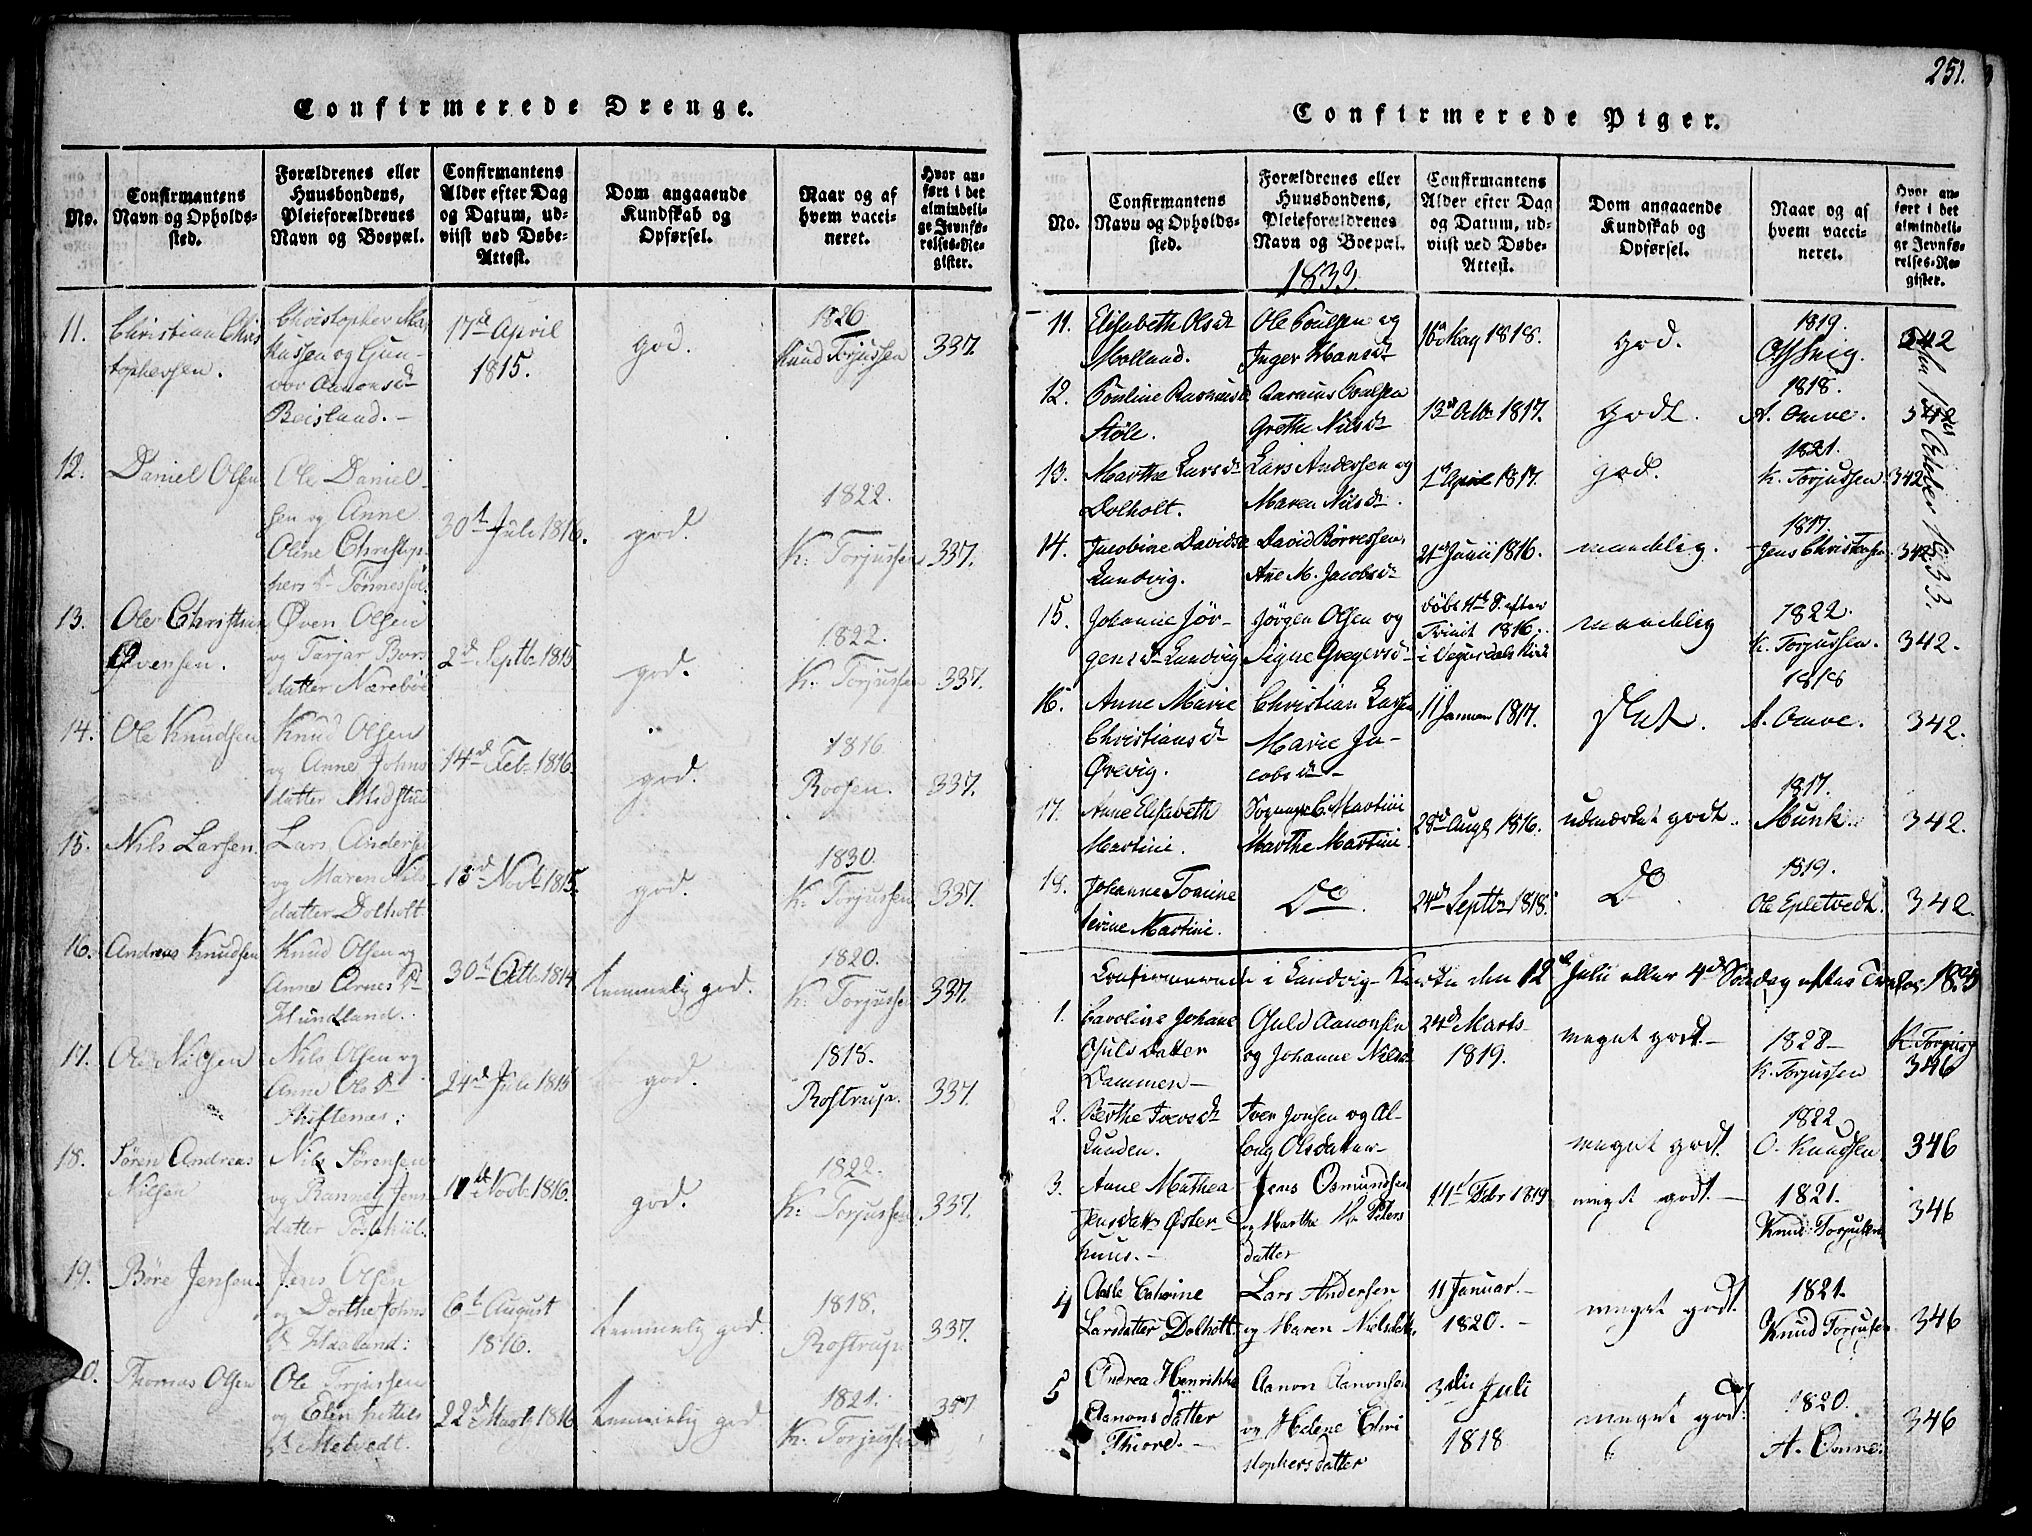 Confirmerede Drenge.
No.
Confirmantens
Navn og Opholds-
sted.
Forældrenes eller
Huusbondens,
Pleieforældrenes
Navn og Boepæl.
Confirmantens
Alder efter Dag
og Datum, ud-
viist ved Døbe-
Attest.
Dom angaaende
Kundskab og
Opførsel.
Naar og af
hvem vacci-
neret.
Hvor an-
ført i det
almindeli-
ge Jevnfø-
relses-Re-
gister.
11.
Christian Chris
tophersen.
Christopher Mar
kussen og Gun-
vor Aanonsdr
Beisland.-
17de April
1815.
god.
1826
Knud Torjussen
337.
12.
Daniel Olsen
Ole Daniel-
sen og Anne
Oline Christop
hersdr Tønnessøl
30te Juli 1816.
god.
1822
K. Torjussen
337.
13.
Ole Christian
Øvensen.
Øven Olsen
og Tarjar Bors
datter Nærebøe
2den Septbr 1815
god.
1822.
K. Torjussen
337.
14.
Ole Knudsen
Knud Olsen
og Anne Johns
datter
14de Feb. 1816.
god.
1816
Roosen.
337.
15.
Nils Larsen.
Lars Anderse
og Maren Nils
datter Dolholt
13de Novb. 1815.
god.
1830.
K. Torjussen
337.
16.
Andreas Knudsen
Knud Olsen og
Anne Arnesdr
Hundland.
30te Octb. 1814
temmelig god.
1820.
K. Torjussen
337.
17.
Ole Nilsen
Nils Olsen og
Anne Olsdr
Skiftenes:
24de Juli 1815
god.
1818.
Rostrup.
337.
18.
Søren Andreas
Nilsen
Nils Sørensen
og Ranneij Jens
datter
11te Novb. 1816.
god.
1822.
K. Torjussen
337.
19.
Børe Jensen.
Jens Olsen
og Dorthe Johns
dr Haaland:
6te August
1816.
temmelig god.
1818.
Rostrup
337.
20.
Thomas Olsen
Ole Torjussen
og Elen Kettels
dr Metvedt.
22de Marts 1816
temmelig god
1821.
K. Torjussen
337
251.
Confirmerede Piger.
No.
Confirmantens
Navn og Opholds-
sted.
Forældrenes eller
Huusbondens,
Pleieforældrenes
Navn og Boepæl.
1833.
Confirmantens
Alder efter Dag
og Datum, ud-
viist ved Døbe-
Attest.
Dom angaaende
Kundskab og
Opførsel.
Naar og af
hvem vacci-
neret.
Hvor an-
ført i det
almindeli-
ge Jevnfø-
relses-Re-
gister.
11.
Elisabeth Olsdr
Molland.
Ole Poulsen og
Inger Hansdr
16de May 1818.
god.
1819.
342
12.
Pouline Rasmusdr
Støle.
Rasmus Poulsen
Grethe Nilsdr
13de Octbr 1817.
godt.
1818.
A. Omve.
342
13.
Marthe Larsdr
Dolholt.
Lars Andersen og
Maren Nilsdr.
1te April 1817.
god.
1821.
K. Torjussen.
342
14.
Jacobine Davidsdr
Landvig.
David Børresen,
Ane M. Jacobsdr
21de Junii 1816.
maadelig.
1817.
Jens Christensen
342
15.
Johanne Jør-
gensdr Landvig
Jørgen Olsen og
Signe Gregersdr
døbt 4de S. efter
Trinit 1816
i Vegusdals Kirke
maadelig
1822.
K. Torjussen.
342.
16.
Anne Marie
Christiansdr
Ørevig.
Christian Larsen
Marie Ja-
cobsdr
11 Januar 1817.
slet.
1818
A. Omve.
342.
17.
Anne Elisabeth
Martini.
Sognepr C. Martini
Marthe Martini
28de Augt 1816.
udmærket godt.
1817.
Munk.
342.
18.
Johanne Tomine
Severine Martini.
Do.
24de Septbr 1818.
Do
1819.
Ole Epletvedt
342.
Confirmerede i Landvig-Kirke den 12te Julii eller 4de Søndag efter Trinitat. 1835
1.
Caroline Johane
Gulsdatter
Dammen-
Guld Aanonsen
og Johanne Nilsdr
24de Marts
1819.
meget godt.-
1828-
K. Torjussen
346
2.
Berthe Iversdr
Lunden.
Iver Jonsen og Al-
boug Olsdatter-
meget godt.
1822
O. Knudsen
346
3.
Anne Mathea
Jensdatr Øster-
huus.-
Jens Osmundsen
og Marthe M. Peters
datter
14de Febr 1819
meget godt.-
1821.
Knud Torjussen
346
4
Aasle Cathrine
Larsdatter Dolholt
Lars Andersen
og Maren Nielsdtr
11 Januar.-
1820.-
meget god.
1821.
Knud Torjusen
346
5
Andrea Henrikke
Aanonsdatter
Thiore.-
Aanon Aanonsen
og Helene Chri
stophersdatter
3die Juli
1818
meget god.
1820.
A. Omve.
346